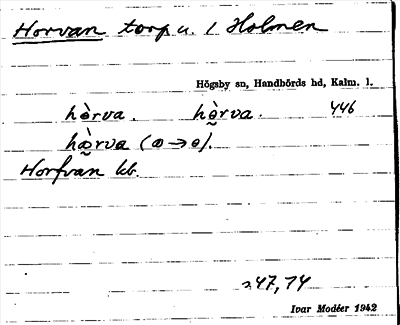 Horvan torp u. 1 Holmen
Högsby sn, Handbörds hd, Kalm. l.
hèrva. hè̤rva. 446
hæ̤̀rva (æ→e).
Horfvan kb.
247,74
Ivar Modéer 1942